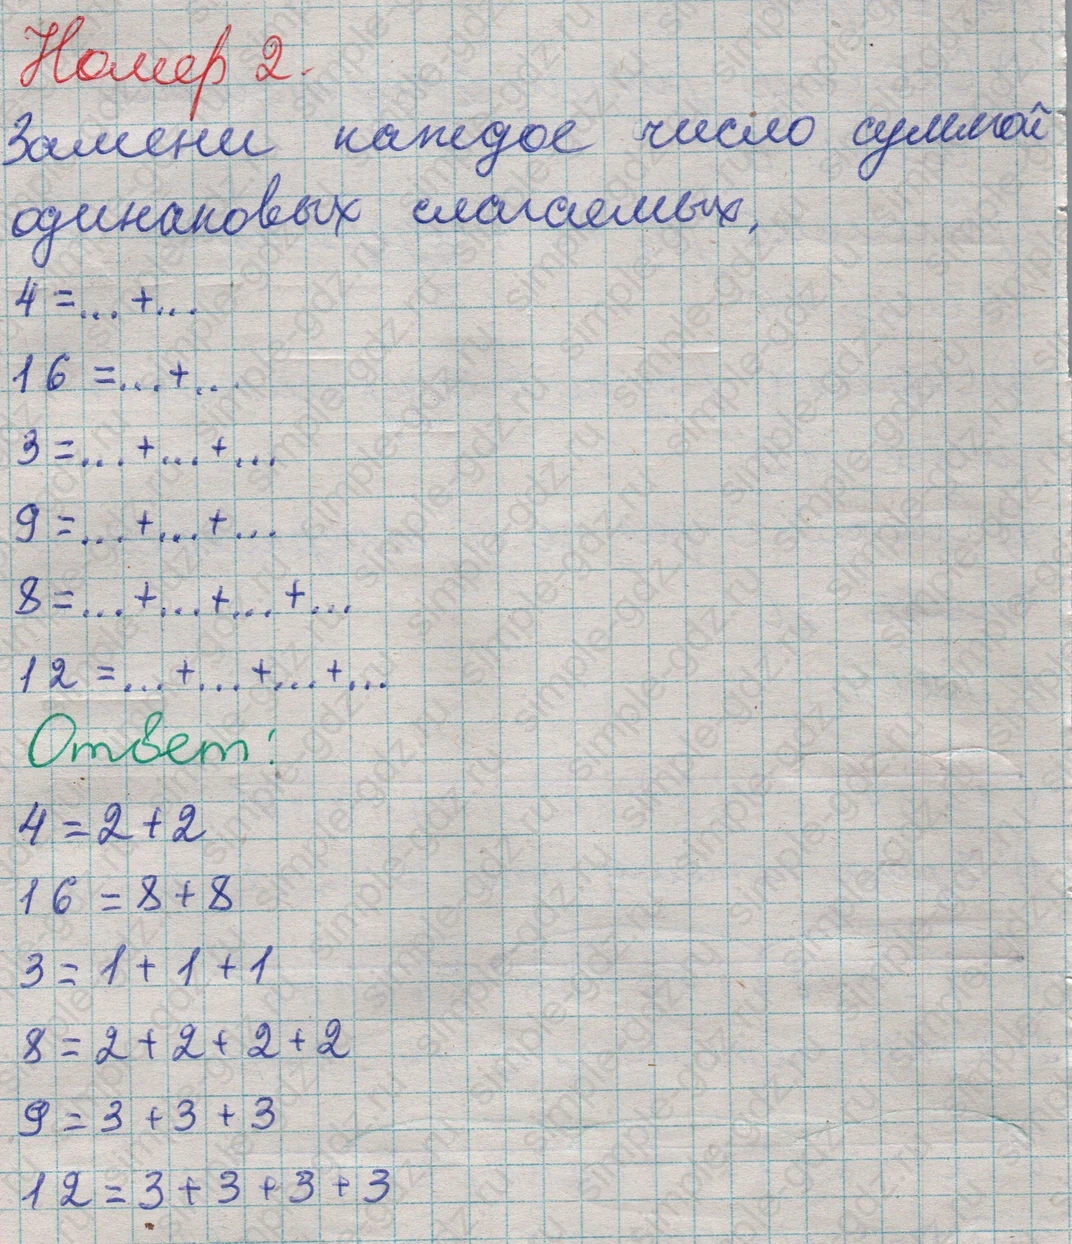 Номер 2.
Замени каждое число суммой
одинаковых слагаемых,
4 =...+...
16 =...+...
3 =...+...+...
9 =...+...+...
8 =...+...+...+...
12 =...+...+...+...
Ответ:
4 = 2 + 2
16 = 8 + 8
3 = 1 + 1 + 1
8 = 2 + 2 + 2 + 2
9 = 3 + 3 + 3
12 = 3 + 3 + 3 + 3
simple-gdz.ru